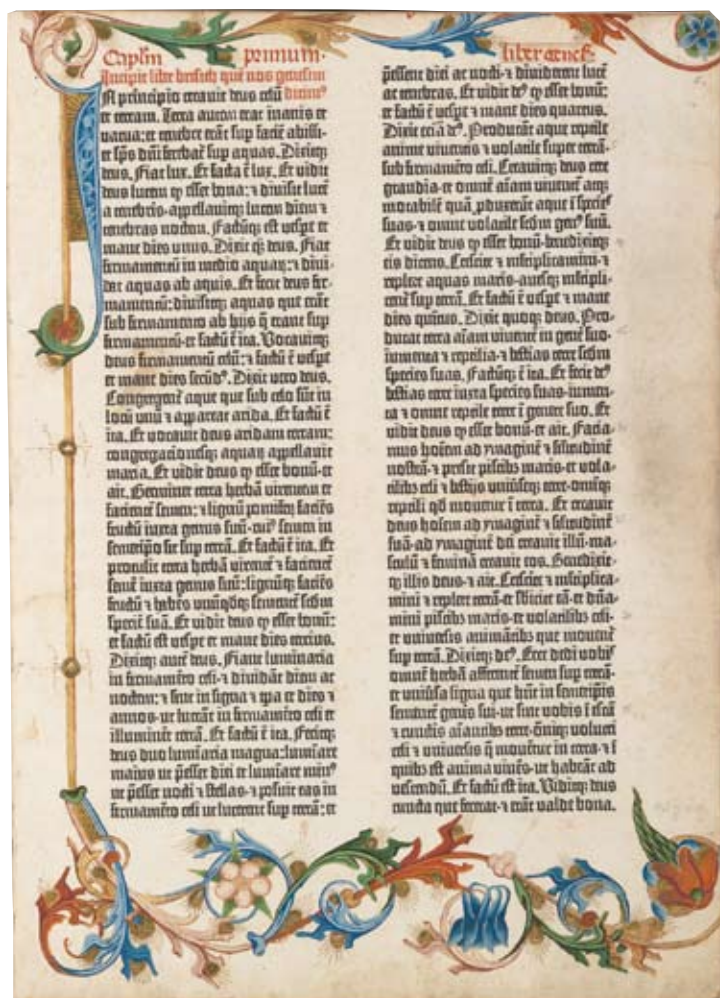 Caplm primum.
Incipit liber bresich quē nos genesim
In principio creavit deus celū dicimꝰ
et terram. Terra autem erat inanis et
vacua: et tenebre erāt sup facie abissi:
et spūs dn̄i ferebat̄ sup aquas. Dixitq;
deus. Fiat lux. Et facta ē lux. Et vidit
deus lucem q esset bona: ⁊ divisit lucē
a tenebris-appellavitq; lucem diem ⁊
tenebras noctem. Factūq; est vespe et
mane dies unus. Dixit q; deus. Fiat
firmamentū in medio aquaꝝ: ⁊ divi-
dat aquas ab aquis. Et fecit deus fir-
mamentū: divisitq; aquas que erāt
sub firmamento ab hijs q̄ erant sup
firmamentū: et factū ē ita. Vocavitq;
deus firmamentū celū: ⁊ factū ē vespe
et mane dies secūdꝰ. Dixit vero deus.
Congregent̄ aque que sub celo sūt in
locū unū ⁊ appareat arida. Et factū ē
ita. Et vocavit deus aridam terram:
congregacionesq; aquaꝝ appellavit
maria. Et vidit deus q esset bonū-et
ait. Germinet terra herbā virentem et
facientē semen: ⁊ lignū pomiseꝝ faciēs
fructū iuxta genus suū-cuiꝰ semen in
semetipo sit sup terrā. Et factū ē ita. Et
protulit terra herbā virentē ⁊ facientē
semē iuxta genus suū: lignūq; faciēs
fructū ⁊ habēs unūqdq; sementē scdm
speciē suā. Et vidit deus q esset bonū:
et factū est vespe et mane dies tercius.
Dixitq; autē deus. Fiant luminaria
in firmamēto celi-⁊ dividāt diem ac
noctem: ⁊ sint in signa ⁊ tpa et dies ⁊
annos-ut luceāt in firmamēto celi et
illuminēt terrā. Et factū ē ita. Fecitq;
deus duo luminaria magna: luminare
maius ut p̄esset diei et luminare minꝰ
ut p̄esset nocti ⁊ stellas-⁊ posuit eas in
firmamēto celi ut lucerent sup terrā: et
liber genesis
p̄essent diei ac nocti-⁊ dividerent lucē
ac tenebras. Et vidit dꝰ q esset bonū:
et factū ē vespe ⁊ mane dies quartus.
Dixit eciā dꝰ. Producāt aque reptile
anime viventis ⁊ volatile super terrā-
sub firmamēto celi. Creavitq; deus cete
grandia-et omnē aīam viventē atq;
motabilē quā pduxerāt aque ī species
suas-⁊ omne volatile scdm genꝰ suū.
Et vidit deus q esset bonū-benedixitq;
eis dicens. Crescite ⁊ multiplicamini-⁊
replete aquas maris-avesq; multipli-
cent̄ sup terrā. Et factū ē vespe ⁊ mane
dies quintus. Dixit quoq; deus. Pro-
ducat terra aīam viventē in genē suo-
iumenta ⁊ reptilia-⁊ bestias terre scdm
species suas. Factūq; ē ita. Et fecit dꝰ
bestias terre iuxta species suas-iumen-
ta ⁊ omne reptile terre ī genere suo. Et
vidit deus q esset bonū-et ait. Facia-
mus hoīem ad ymaginē ⁊ silitudinē
nostrā-⁊ presit piscibꝫ maris-et vola-
tilibꝫ celi ⁊ bestijs universeq; terre-omīq;
reptili qd movetur ī terra. Et creavit
deus hoīem ad ymaginē ⁊ silitudinē
suā-ad ymaginē dei creavit illū-ma-
sculū ⁊ feminā creavit eos. Benedixit-
q; illis deus-⁊ ait. Crescite ⁊ multiplica-
mini ⁊ replete terrā-et sbicite eā-et dn̄a-
mini piscibꝫ maris-et volatilibus celi-
et universis animātibꝫ que moventʳ
sup terrā. Dixitq; dꝰ. Ecce dedi vobis
omnē herbā afferentē semen sup terrā-
et uniūsa ligna que hn̄t in semetipis
sementē genis sui-ut sint vobis ī escā
⁊ cunctis aīantibꝫ terre-omīq; volucri
celi ⁊ universis q̄ moventur in terra-⁊ ī
quibꝫ est anima vivēs-ut habeāt ad
vescendū. Et factū est ita. Viditq; deus
cuncta que fecerat-⁊ erāt valde bona.